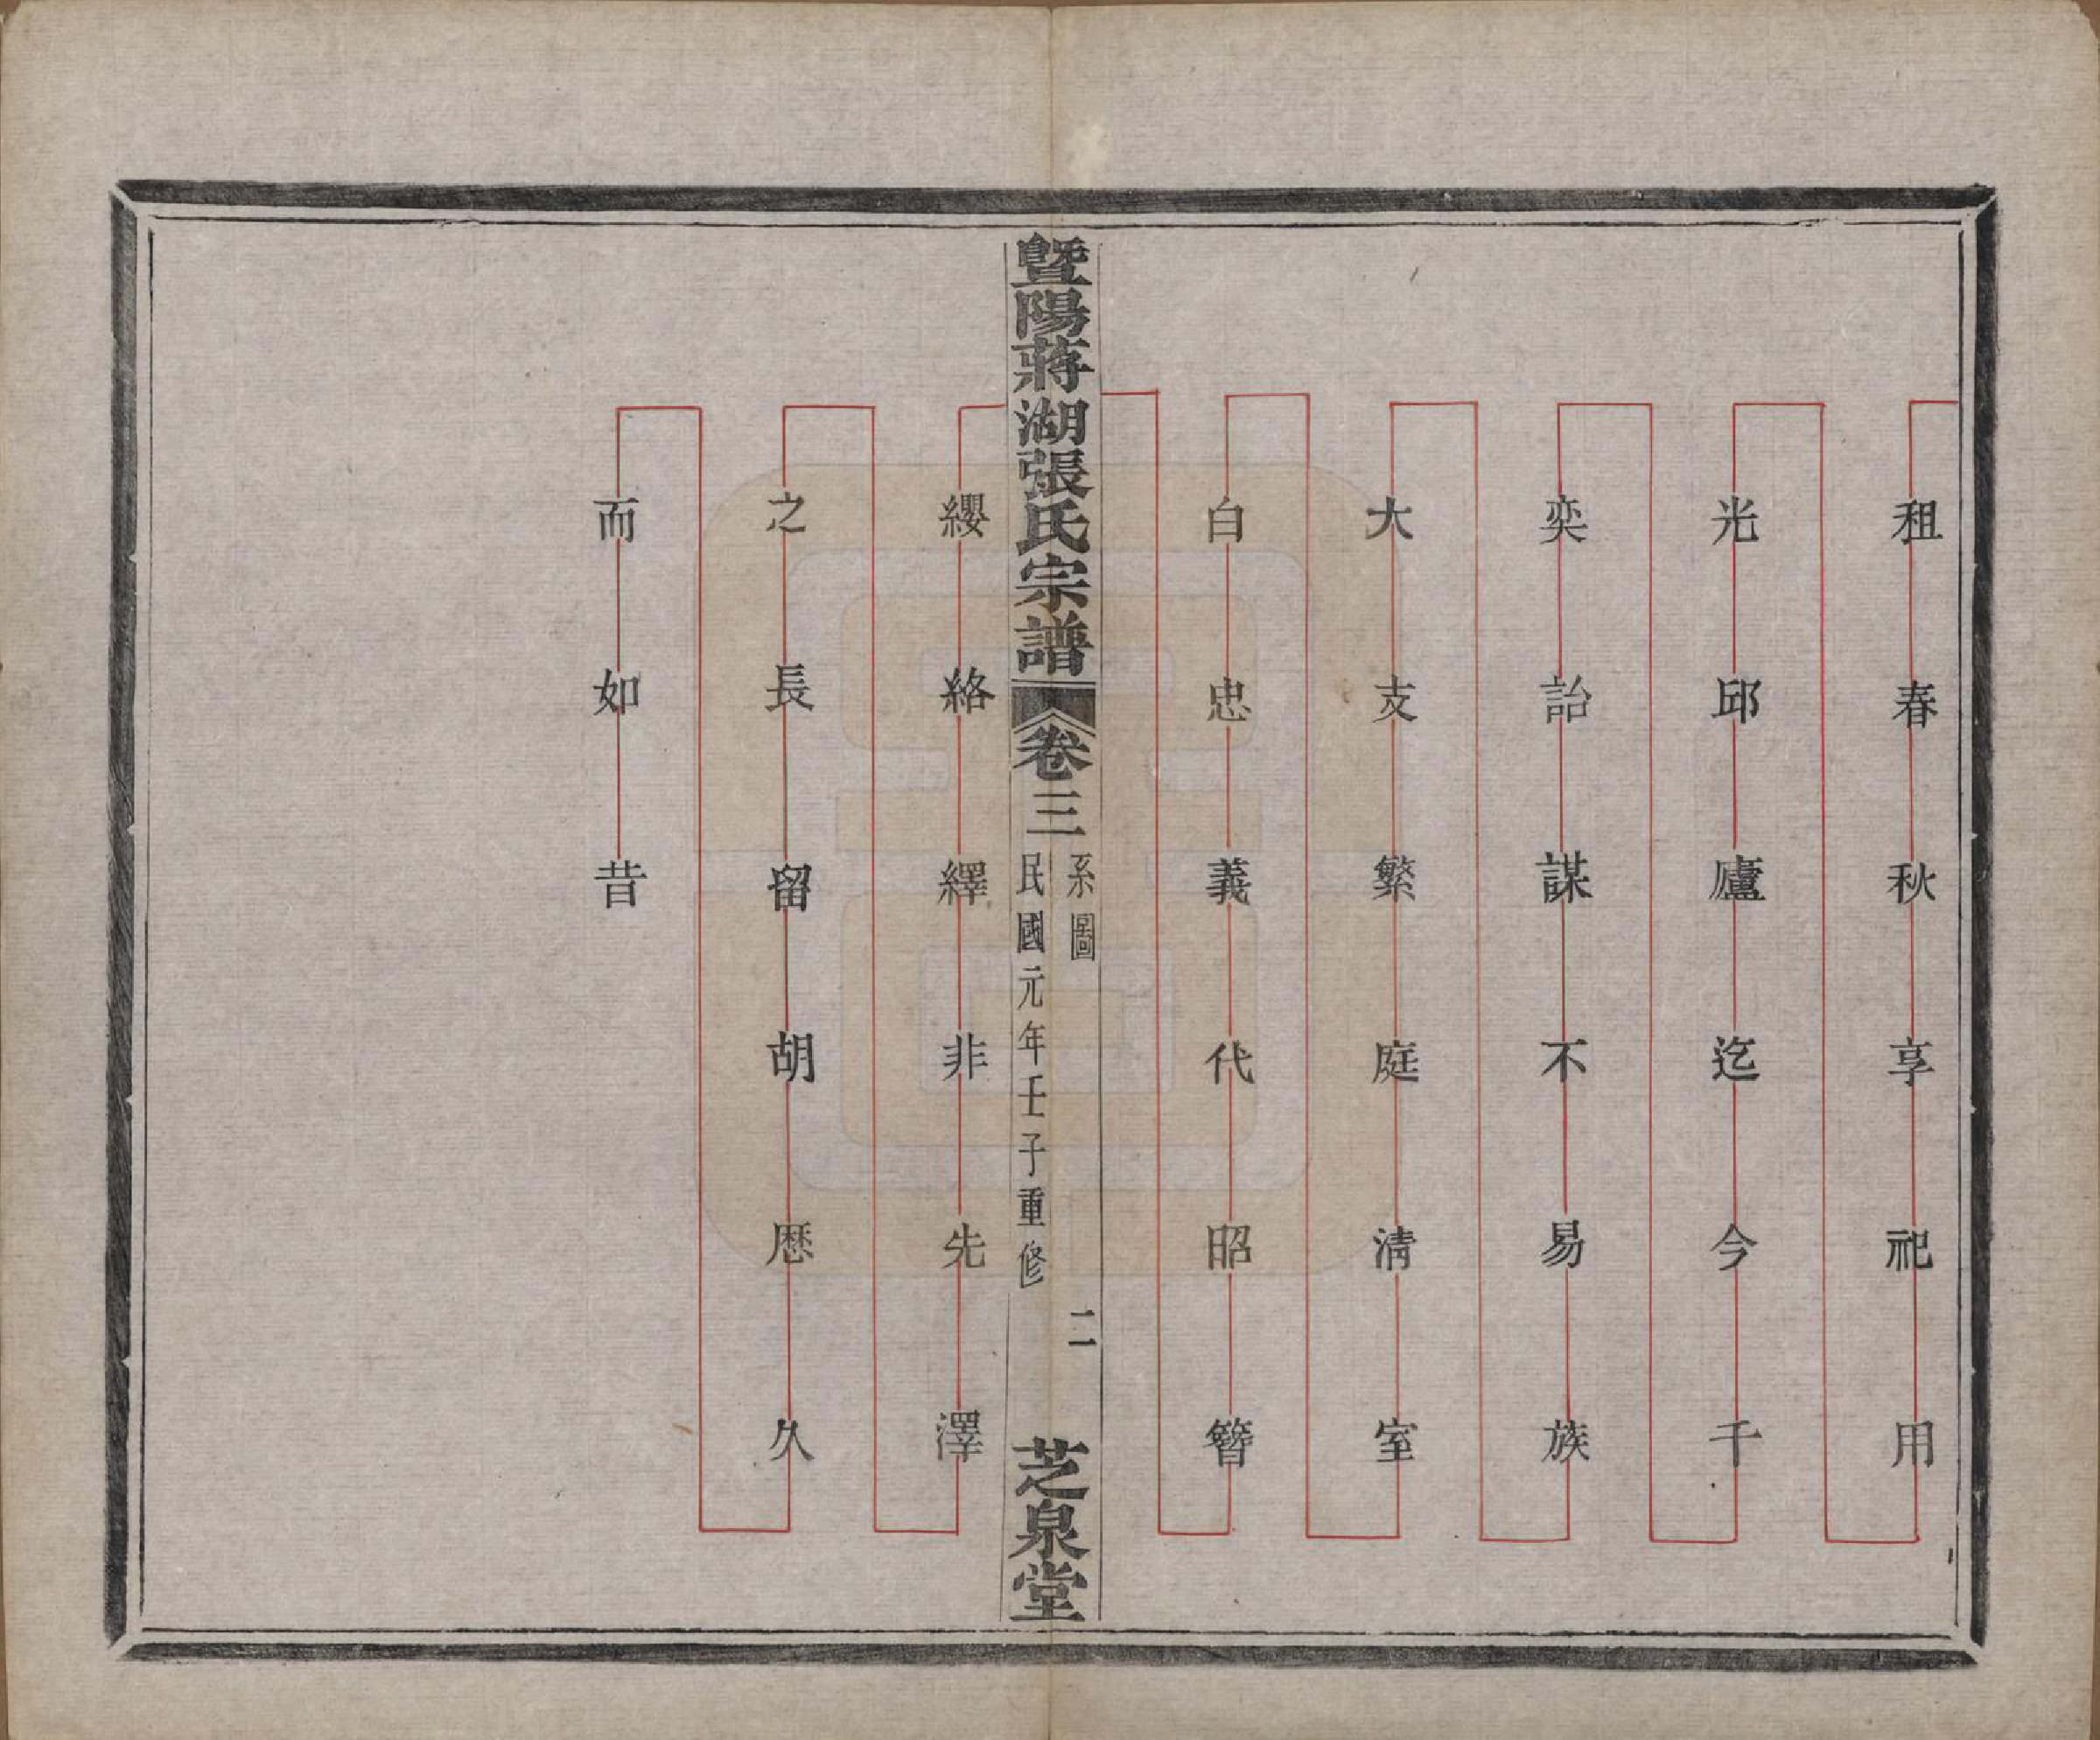 租春秋享祀用
光邱廬迄今千
奕詒謀不易族
大支繁庭淸室
白忠義代昭簪
暨陽蔣湖張氏宗譜
卷三
系圖
民國元年壬子重修
二
芝泉堂
纓絡繹非先澤
之長留胡厯久
而如昔